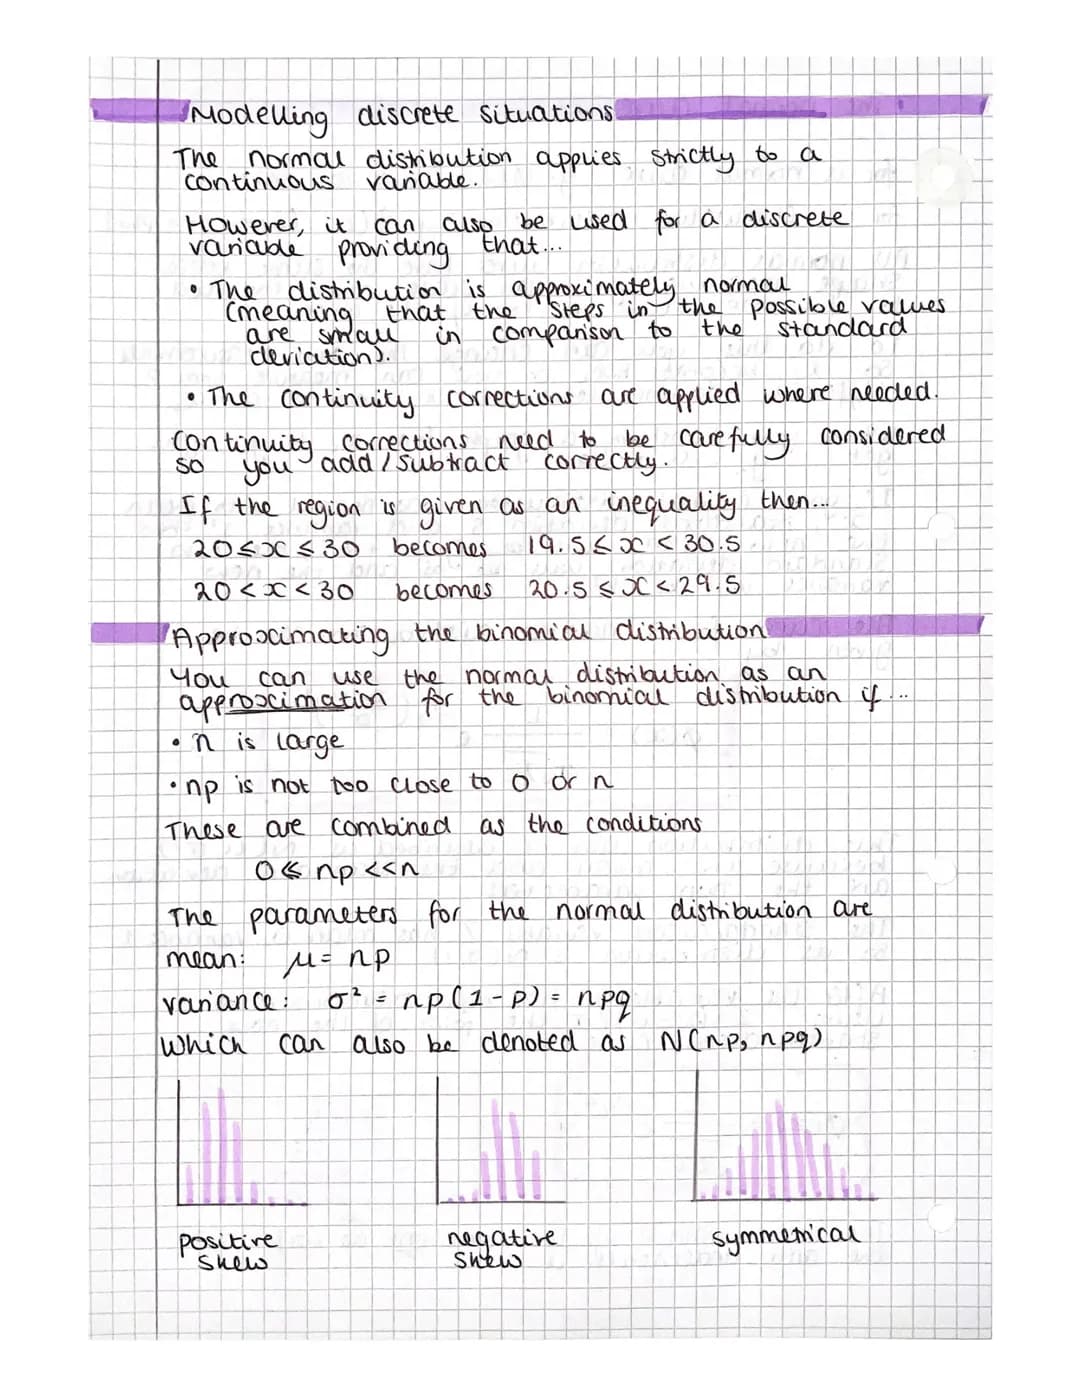 Modelling discrete situations
The normal distribution applies strictly to a
continuous variable.
However, it can also be used for a discrete
variable providing that...
• The distribution is approximately normal
(meaning that the steps in the possible values
are small in comparison to the standard
deviation).
• The continuity corrections are applied where needed.
Continuity corrections need to be carefully considered
so you add / subtract correctly.
If the region is given as an inequality then...
20 ≤ x ≤ 30 becomes 19.5 ≤ x < 30.5
20 < x < 30 becomes 20.5 ≤ x < 29.5
Approximating the binomial distribution
You can use the normal distribution as an
approximation for the binomial distribution if...
• n is large
• np is not too close to 0 or n
These are combined as the conditions
0 ≪ np << n
The parameters for the normal distribution are
mean: μ = np
variance: σ² = np(1-p) = npq
which can also be denoted as N(np, npq)
positive negative symmetrical
skew skew